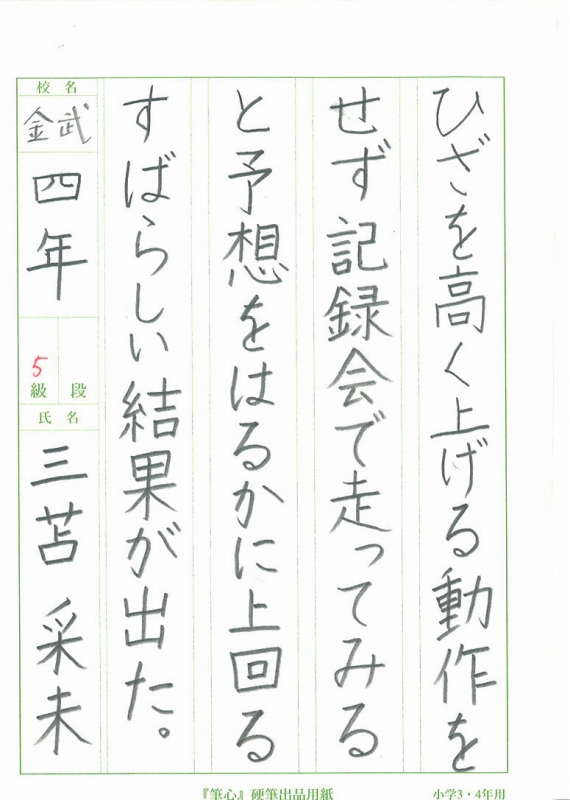 ひざを高く上げる動作を
せず記録会で走ってみる
と予想をはるかに上回る
すばらしい結果が出た。
校名
金武
四年
段
5級
氏名
三苫 采未
『筆心』硬筆出品用紙
小学3・4年用